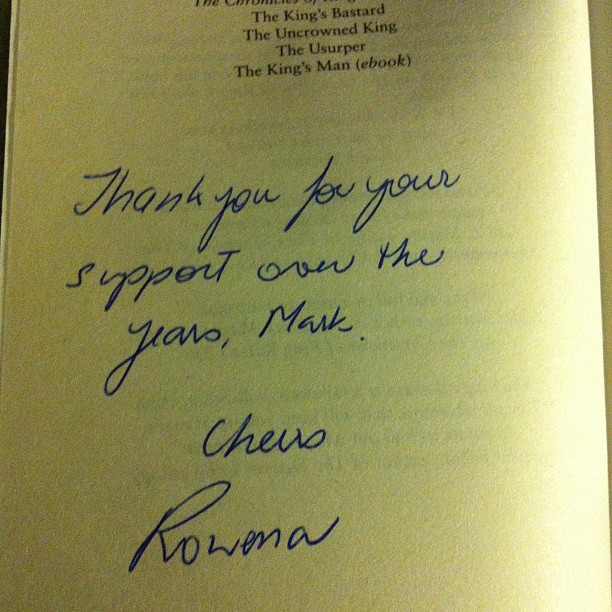 The Chronicles of
The King's Bastard
The Uncrowned King
The Usurper
The King's Man (ebook)
Thank you for your
support over the
years, Mark.
Cheers
Rowena